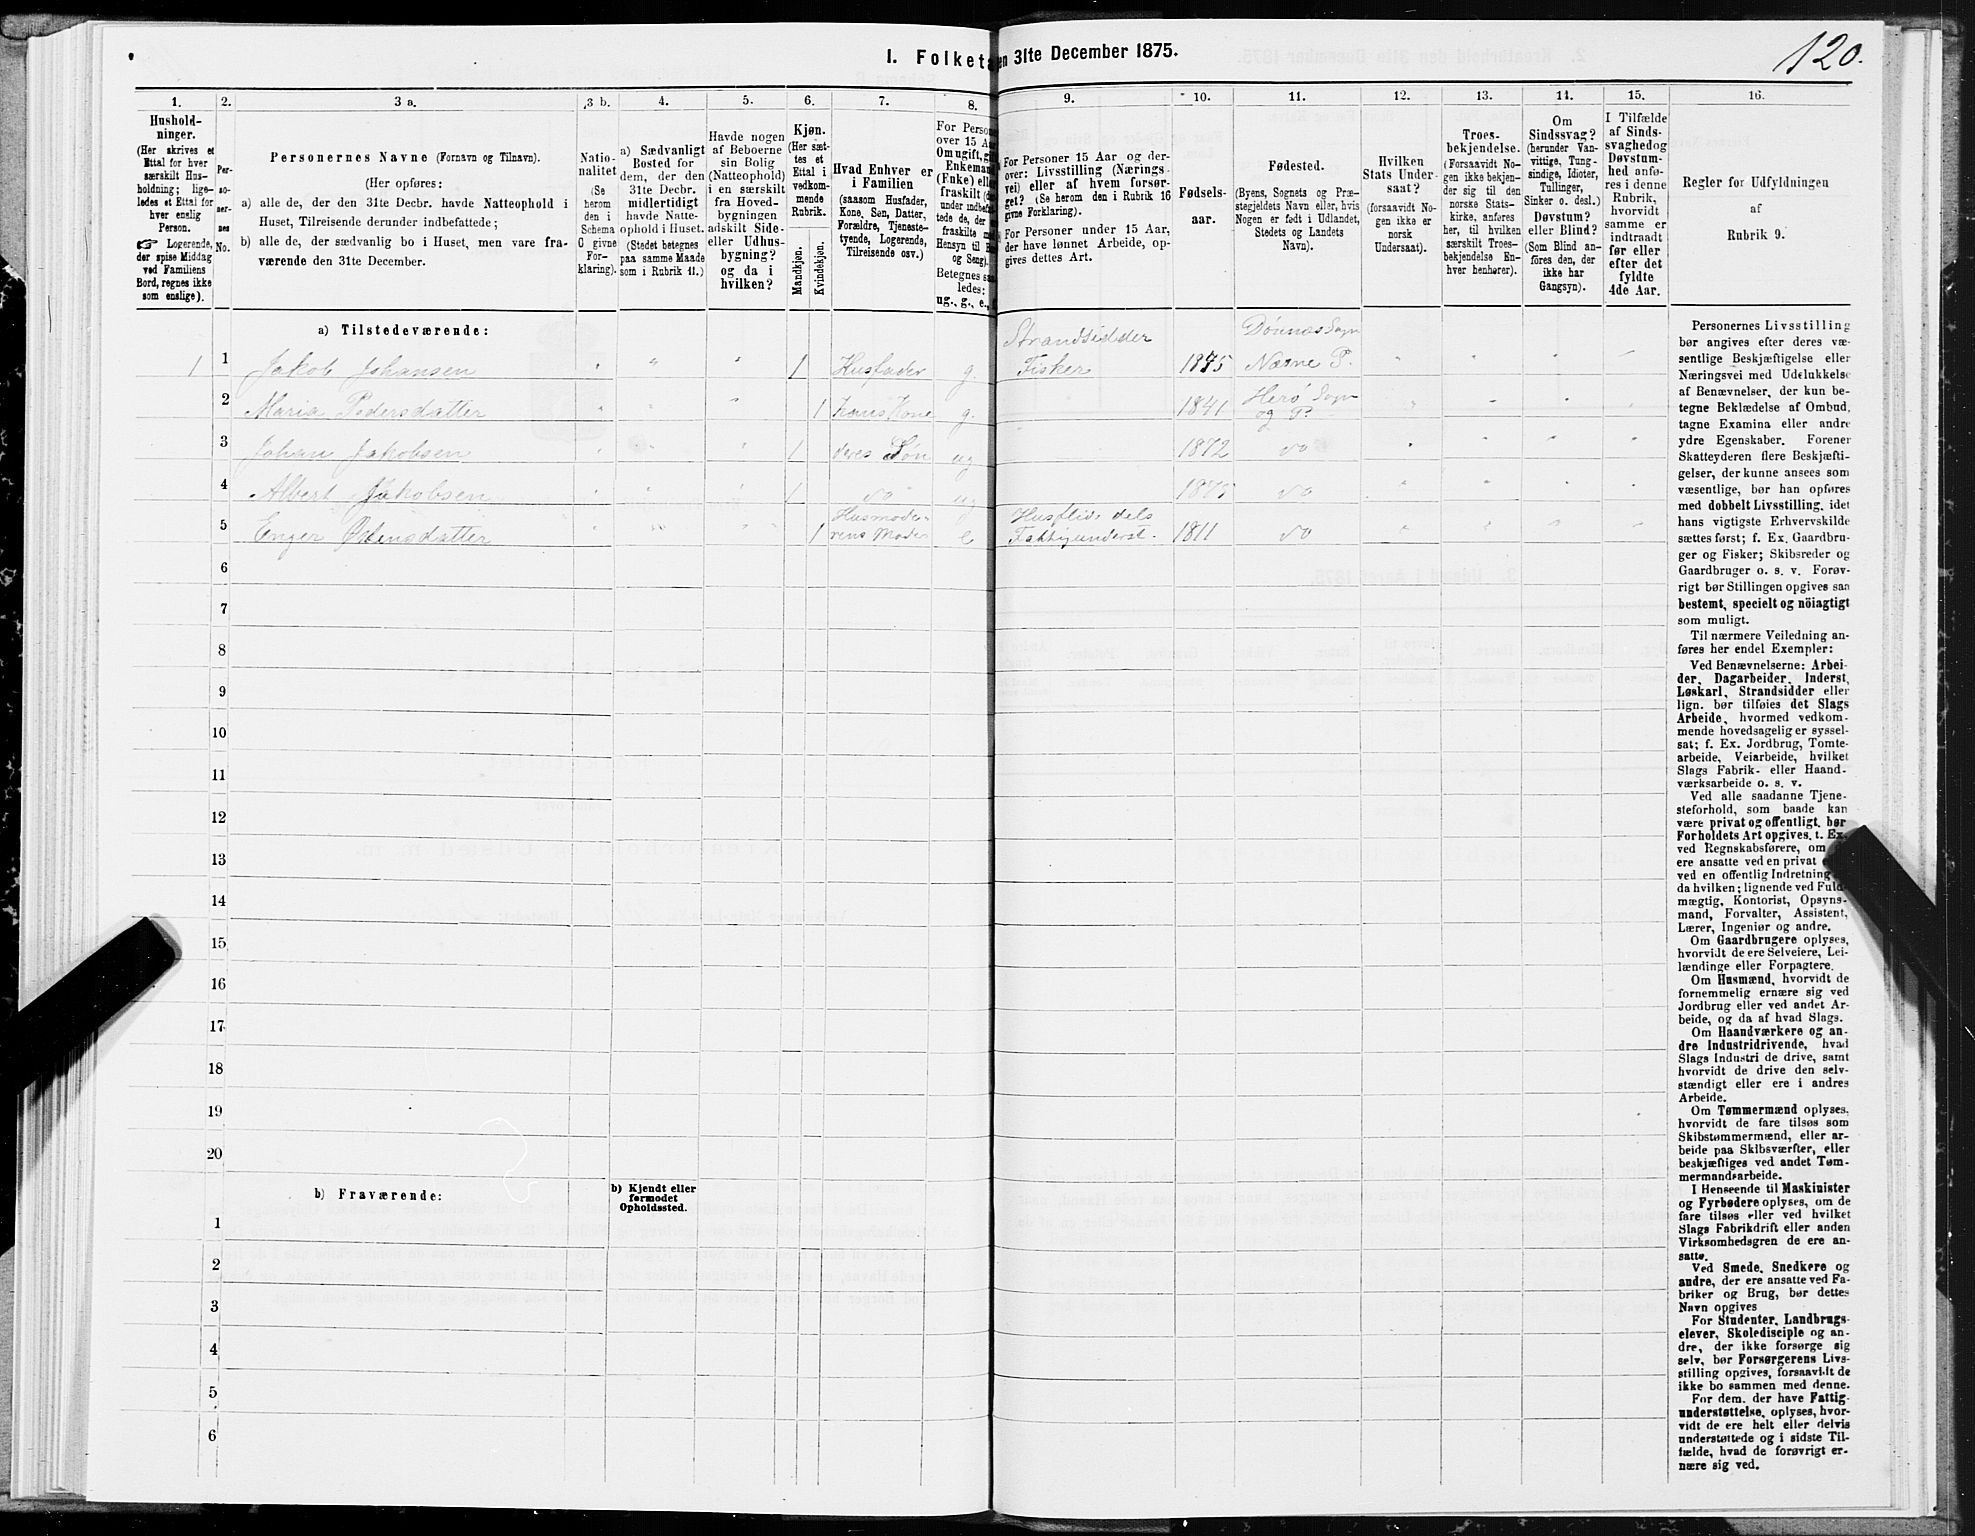 I. Folketa en 31te December 1875.
120.
1.
Hushold-
ninger.
(Her skrives et
Ettal for hver
særskilt Hus-
holdning; lige-
ledes et Ettal for
hver enslig
Person.
Logerende,
der spise Middag
ved Familiens
Bord, regnes ikke
som enslige).
2.
Per-
so-
ner-
nes
No.
3 a.
Personernes Navne (Fornavn og Tilnavn).
(Her opføres:
a) alle de, der den 31te Decbr. havde Natteophold i
Huset, Tilreisende derunder indbefattede;
b) alle de, der sædvanlig bo i Huset, men vare fra-
værende den 31te December.
3 b.
Natio-
nalitet
(Se
herom
den i
Schema
C givne
For-
klaring).
4.
a) Sædvanligt
Bosted for
dem, der den
31te Decbr.
midlertidigt
havde Natte-
ophold i Huset.
(Stedet betegnes
paa samme Maade
som i Rubrik 11.)
5.
Havde nogen
af Beboerne
sin Bolig
(Natteophold)
i en særskilt
fra Hoved-
bygningen
adskilt Side-
eller Udhus-
bygning?
og da i
hvilken?
6.
Kjøn.
(Her sæt-
tes et
Ettal i
vedkom-
mende
Rubrik.
Mandkjøn.
Kvindekjøn.
7.
Hvad Enhver er
i Familien
(saasom Husfader,
Kone, Søn, Datter,
Forældre, Tjeneste-
tyende, Logerende,
Tilreisende osv.)
8.
For Persone
over 15 Aar
Om ugift, gif
Enkemand
(Enke) elle
fraskilt (d
under indbefat
tede de, der
fraskilte me
Hensyn til B
og Seng).
Betegnes saa
ledes:
ug., g., e., f
9.
For Personer 15 Aar og der-
over: Livsstilling (Nærings-
vei) eller af hvem forsør-
get? (Se herom den i Rubrik 16
givne Forklaring).
For Personer under 15 Aar,
der have lønnet Arbeide, op-
gives dettes Art.
10.
Fødsels-
aar.
11.
Fødested.
(Byens, Sognets og Præ-
stegjeldets Navn eller, hvis
Nogen er født i Udlandet,
Stedets og Landets
Navn).
12.
Hvilken
Stats Under-
saat?
(forsaavidt No-
gen ikke er
norsk
Undersaat).
13.
Troes-
bekjendelse.
(Forsaavidt No-
gen ikke bekjen-
der sig til den
norske Stats-
kirke, anføres
her, til hvilken
særskilt Troes-
bekjendelse En-
hver henhører).
14.
Om
Sindssvag?
(herunder Van-
vittige, Tung-
sindige, Idioter,
Tullinger,
Sinker o. desl.)
Døvstum?
eller Blind?
(Som Blind an-
føres den, der
ikke har
Gangsyn).
15.
I Tilfælde
af Sinds-
svaghed og
Døvstum-
hed anfø-
res i denne
Rubrik,
hvorvidt
samme er
indtraadt
før eller
efter det
fyldte
4de Aar.
16.
Regler for Udfyldningen
af
Rubrik 9.
a) Tilstedeværende:
Strandsidder Dønnæs Sogn
1 1 Jakob Johansen 1 Husfader g. Fisker 1845 Næsne P.
Herø Sogn
2 Maria Pedersdatter 1 hans Kone g. 1841 og P.
3 Johan Jakobsen 1 deres Søn ug 1872 do
4 Albert Jakobsen 1 do ug 1875 do
Husmode- Husflid dels
5 Enger Østensdatter 1 rens Moder e Fattigunderst. 1811 do
6
7
8
9
10
11
12
13
14
15
16
17
18
19
20
b) Fraværende:
b) Kjendt eller
formodet
Opholdssted.
1
2
3
4
5
6
Personernes Livsstilling
bør angives efter deres væ-
sentlige Beskjæftigelse eller
Næringsvei med Udelukkelse
af Benævnelser, der kun be-
tegne Beklædelse af Ombud,
tagne Examina eller andre
ydre Egenskaber. Forener
Skatteyderen flere Beskjæfti-
gelser, der kunne ansees som
væsentlige, bør han opføres
med dobbelt Livsstilling, idet
hans vigtigste Erhvervskilde
sættes først; f. Ex. Gaardbru-
ger og Fisker; Skibsreder og
Gaardbruger o. s. v. Forøv-
rigt bør Stillingen opgives saa
bestemt, specielt og nöiagtigt
som muligt.
Til nærmere Veiledning an-
føres her endel Exempler:
Ved Benævnelserne: Arbei-
der, Dagarbeider, Inderst,
Løskarl, Strandsidder eller
lign. bør tilføies det Slags
Arbeide, hvormed vedkom-
mende hovedsagelig er syssel-
sat; f. Ex. Jordbrug, Tomte-
arbeide, Veiarbeide, hvilket
Slags Fabrik- eller Haand-
værksarbeide o. s. v.
Ved alle saadanne Tjene-
steforhold, som baade kan
være privat og offentligt, bør
Forholdets Art opgives, t. Ex.
ved Regnskabsførere, om
ere ansatte ved en privat e
ved en offentlig Indretning
da hvilken; lignende ved Fuld-
mægtig, Kontorist, Opsyns-
mand, Forvalter, Assistent,
Lærer, Ingeniør og andre.
Om Gaardbrugere oplyses,
hvorvidt de ere Selveiere, Lei-
lændinge eller Forpagtere.
Om Husmænd, hvorvidt de
fornemmelig ernære sig ved
Jordbrug eller ved andet Ar-
beide, og da af hvad Slags.
Om Haandværkere og an-
dre Industridrivende, hvad
Slags Industri de drive, samt
hvorvidt de drive den selv-
stændigt eller ere i andres
Arbeide.
Om Tømmermænd oplyses,
hvorvidt de fare tilsøs som
Skibstømmermænd, eller ar-
beide paa Skibsværfter, eller
beskjæftiges ved andet Tøm-
mermandsarbeide.
I Henseende til Maskinister
og Fyrbødere oplyses, om de
fare tilsøs eller ved hvilket
Slags Fabrikdrift eller anden
Virksomhedsgren de ere an-
satte.
Ved Smede, Snedkere og
andre, der ere ansatte ved Fa-
briker og Brug, bør dettes
Navn opgives
For Studenter, Landbrugs-
elever, Skoledisciple og an-
dre, der ikke forsørge sig
selv, bør Forsørgerens Livs-
stilling opgives, forsaavidt de
ikke bo sammen med denne.
For dem, der have Fattig-
understøttelse, oplyses, hvor-
vidt de ere helt eller delvis
understøttede og i sidste Til-
fælde, hvad de forøvrigt er-
nære sig ved.